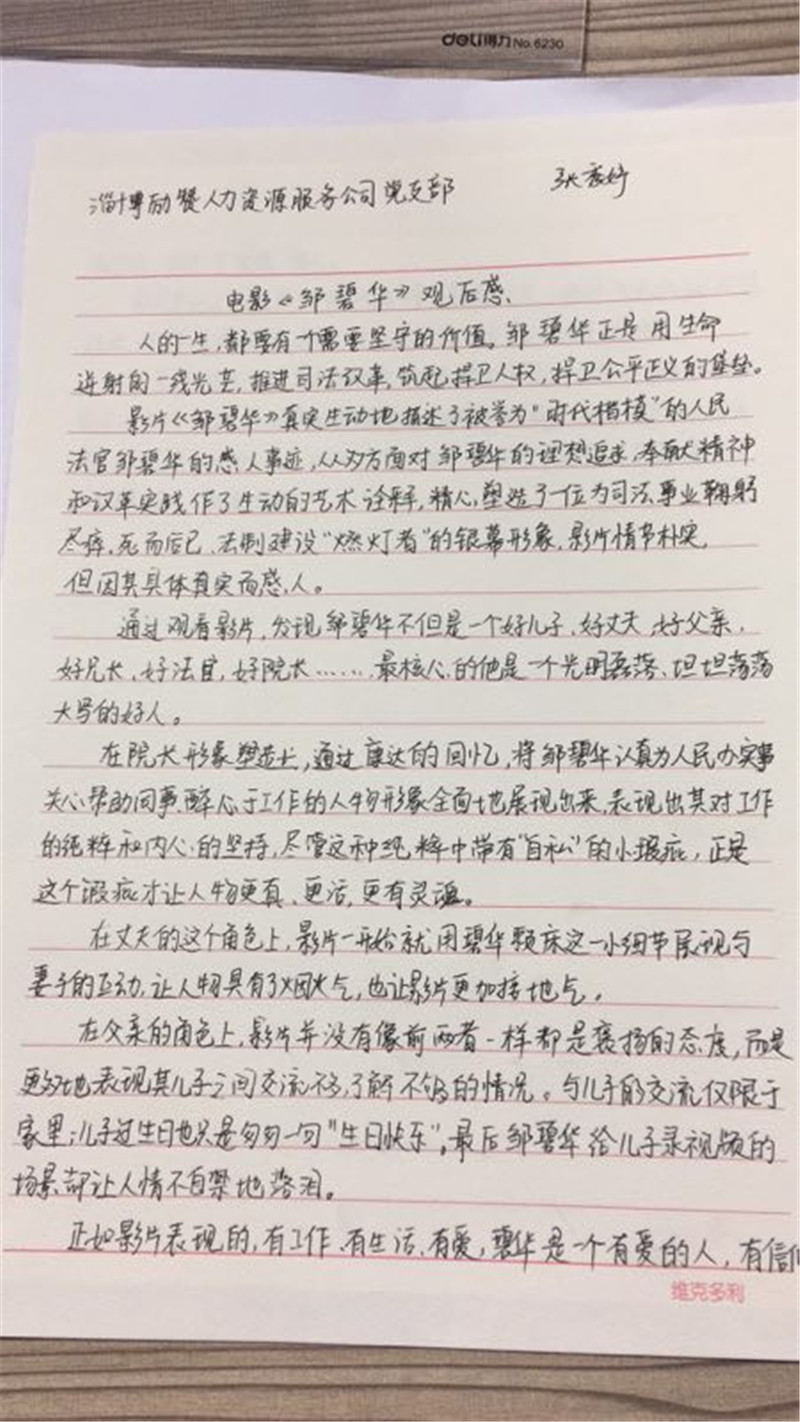 deli得力 No.6230
淄博励赞人力资源服务公司党支部 张
电影《邹碧华》观后感、
人的一生,都要有一个需要坚守的价值。邹碧华正是用生命
迸射的一线光芒,推进司法改革,筑起捍卫人权,捍卫公平正义的堡垒。
影片《邹碧华》真实生动地描述了被誉为"时代楷模"的人民
法官邹碧华的感人事迹,从多方面对邹碧华的理想追求,奉献精神
和改革实践作了生动的艺术诠释,精心塑造了一位为司法事业鞠躬
尽瘁、死而后已、法制建设"燃灯者"的银幕形象,影片情节朴实,
但因其具体真实而感人。
通过观看影片,发现邹碧华不但是一个好儿子、好丈夫、好父亲、
好兄长、好法官,好院长……,最核心的他是一个光明磊落、坦坦荡荡
大写的好人。
在院长形象塑造上,通过康达的回忆,将邹碧华认真为人民办实事
关心帮助同事、醉心于工作的人物形象全面地展现出来,表现出其对工作
的纯粹和内心的坚持,尽管这种纯粹中带有"自私"的小瑕疵,正是
这个瑕疵才让人物更真、更活,更有灵魂。
在丈夫的这个角色上,影片一开始就用碧华颗床这一小细节展现与
妻子的互动,让人物具有了烟火气,也让影片更加接地气。
在父亲的角色上,影片并没有像前两者一样都是褒扬的态度,而是
更多地表现其儿子之间交流不多,了解不够的情况。与儿子的交流仅限于
家里;儿子过生日也只是匆匆一句"生日快乐"。最后邹碧华给儿子录视频的
场景却让人情不自禁地落泪。
正如影片表现的,有工作、有生活、有爱,碧华是一个有爱的人,有信仰
维克多利